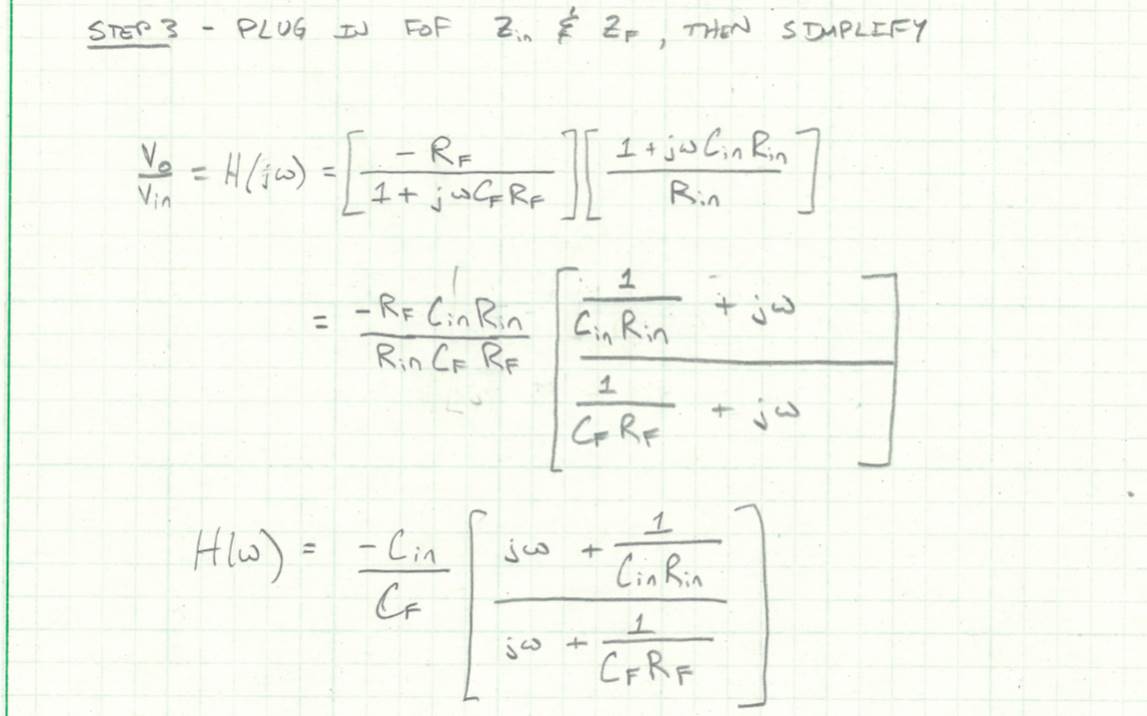 STEP 3 - PLUG IN FOF Zin & ZF, THEN SIMPLIFY
Vo/Vin = H(jω) = [-RF / (1 + jωCFRF)] [(1 + jωCinRin) / Rin]
= (-RF Cin Rin) / (Rin CF RF) [(1/(Cin Rin) + jω) / (1/(CF RF) + jω)]
H(ω) = -Cin/CF [(jω + 1/(Cin Rin)) / (jω + 1/(CF RF))]